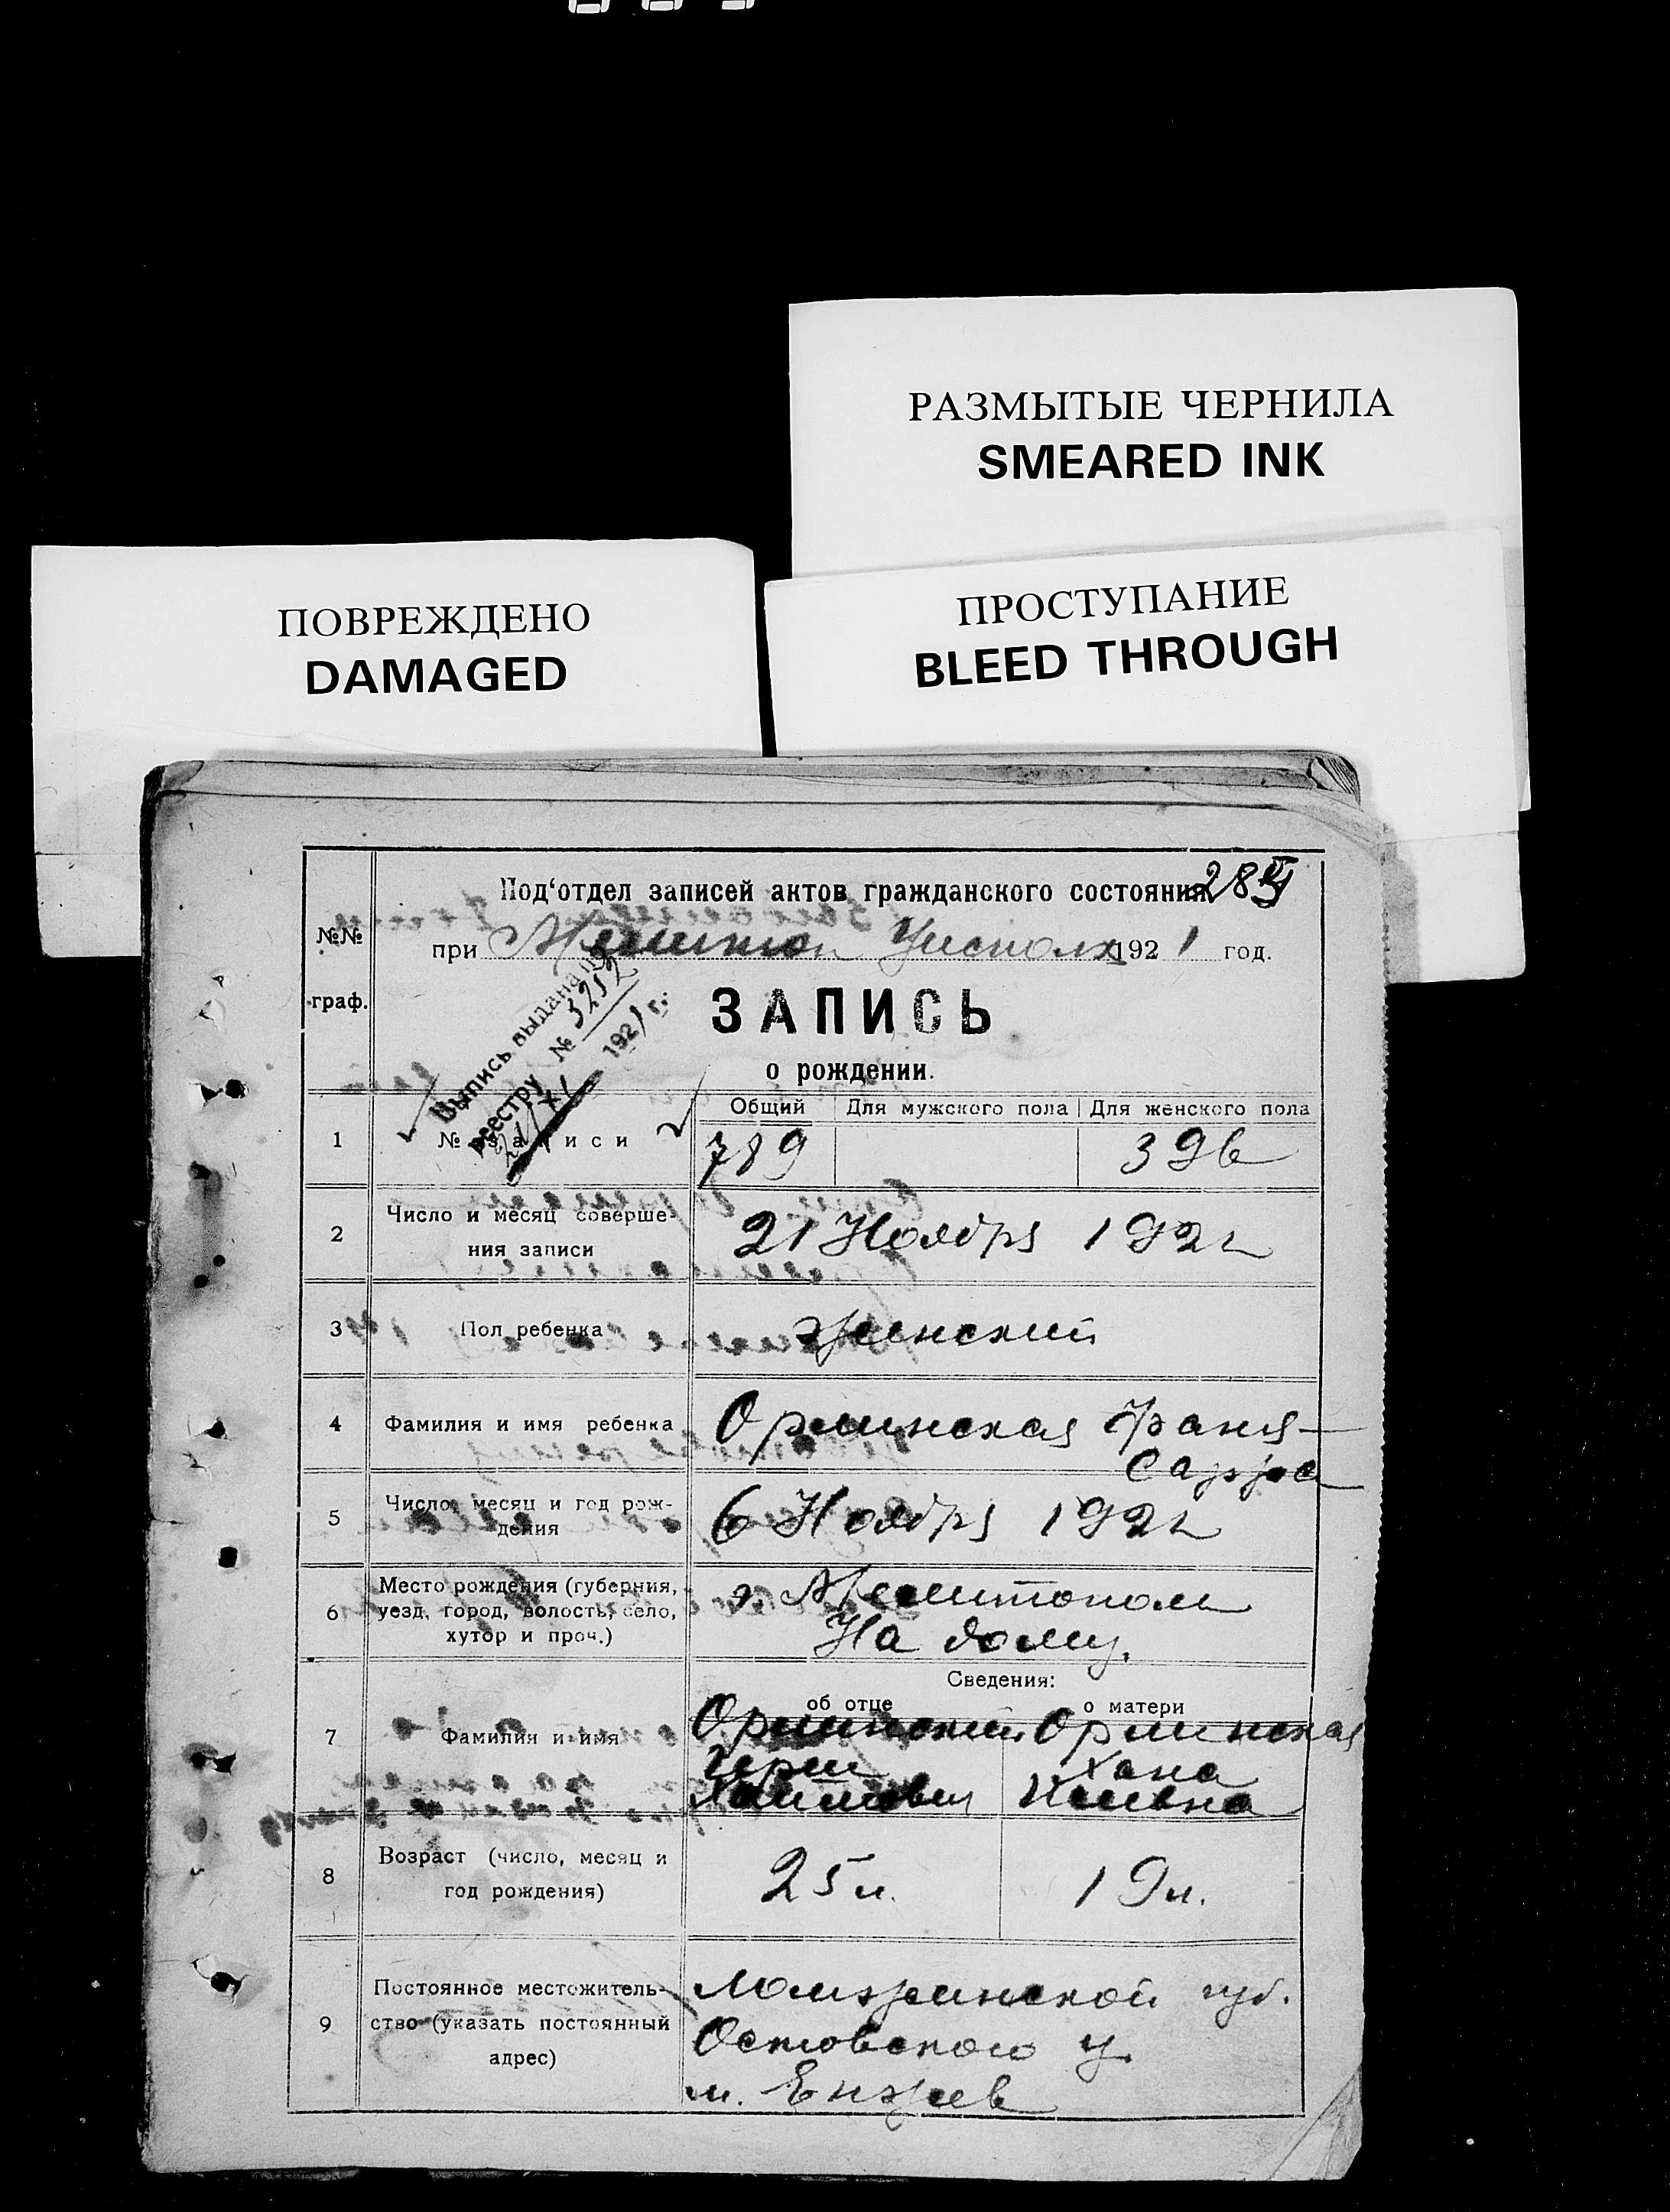 РАЗМЫТЫЕ ЧЕРНИЛА
SMEARED INK
ПРОСТУПАНИЕ
BLEED THROUGH
ПОВРЕЖДЕНО
DAMAGED
Под‘отдел записей актов гражданского состояния
№№
граф.
при Мелитоп Уисполк 1921 год.
ЗАПИСЬ
о рождении.
Выпись выдана по
реестру № 3252
21/XI 1921 г.
Общий Для мужского пола Для женского пола
1 № записи 789 396
2 Число и месяц соверше-
ния записи
21 Ноября 1921
3 Пол ребенка женский
4 Фамилия и имя ребенка Орлинская Фаня-
Сарра
5 Число, месяц и год рож-
дения
6 Ноября 1921
6 Место рождения (губерния,
уезд, город, волость, село,
хутор и проч.)
г. Мелитополь
На дому.
Сведения:
об отце о матери
7 Фамилия и имя
Орлинский Орлинская
Герш Хана
Хаимович
8 Возраст (число, месяц и
год рождения)
25 л. 19 л.
9 Постоянное местожитель-
ство (указать постоянный
адрес)
Ломжинской губ.
Остовского у.
м.